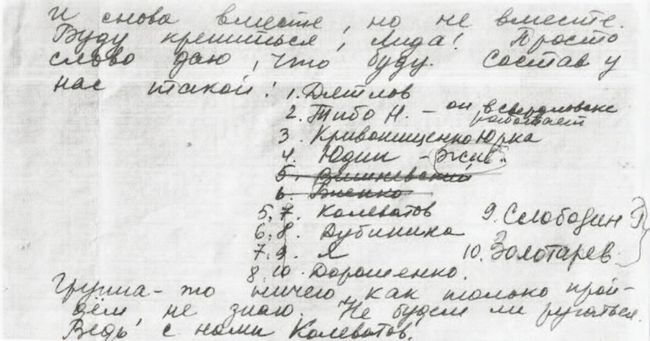 И снова вместе, но не вместе.
Буду крепиться, Лида! Просто
слово даю, что буду. Состав у
нас такой: 1. Дятлов
2. Тибо Н. – он в Свердловске
работает
3. Кривонищенко Юрка
4. Юдин – Жив.
5. Вишневский
6. Биенко
5. 7. Колеватов 9. Слободин Р
6. 8. Дубинина
7. 9. Я 10. Золотарев
8. 10. Дорошенко.
Группа – то ничего, как только прой-
дём, не знаю. Не будем ли ругаться.
Ведь с нами Колеватов.